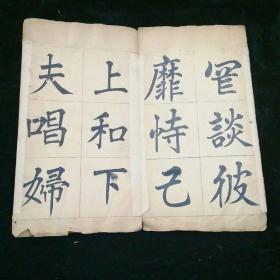 罔談彼
靡恃己
上和下
夫唱婦